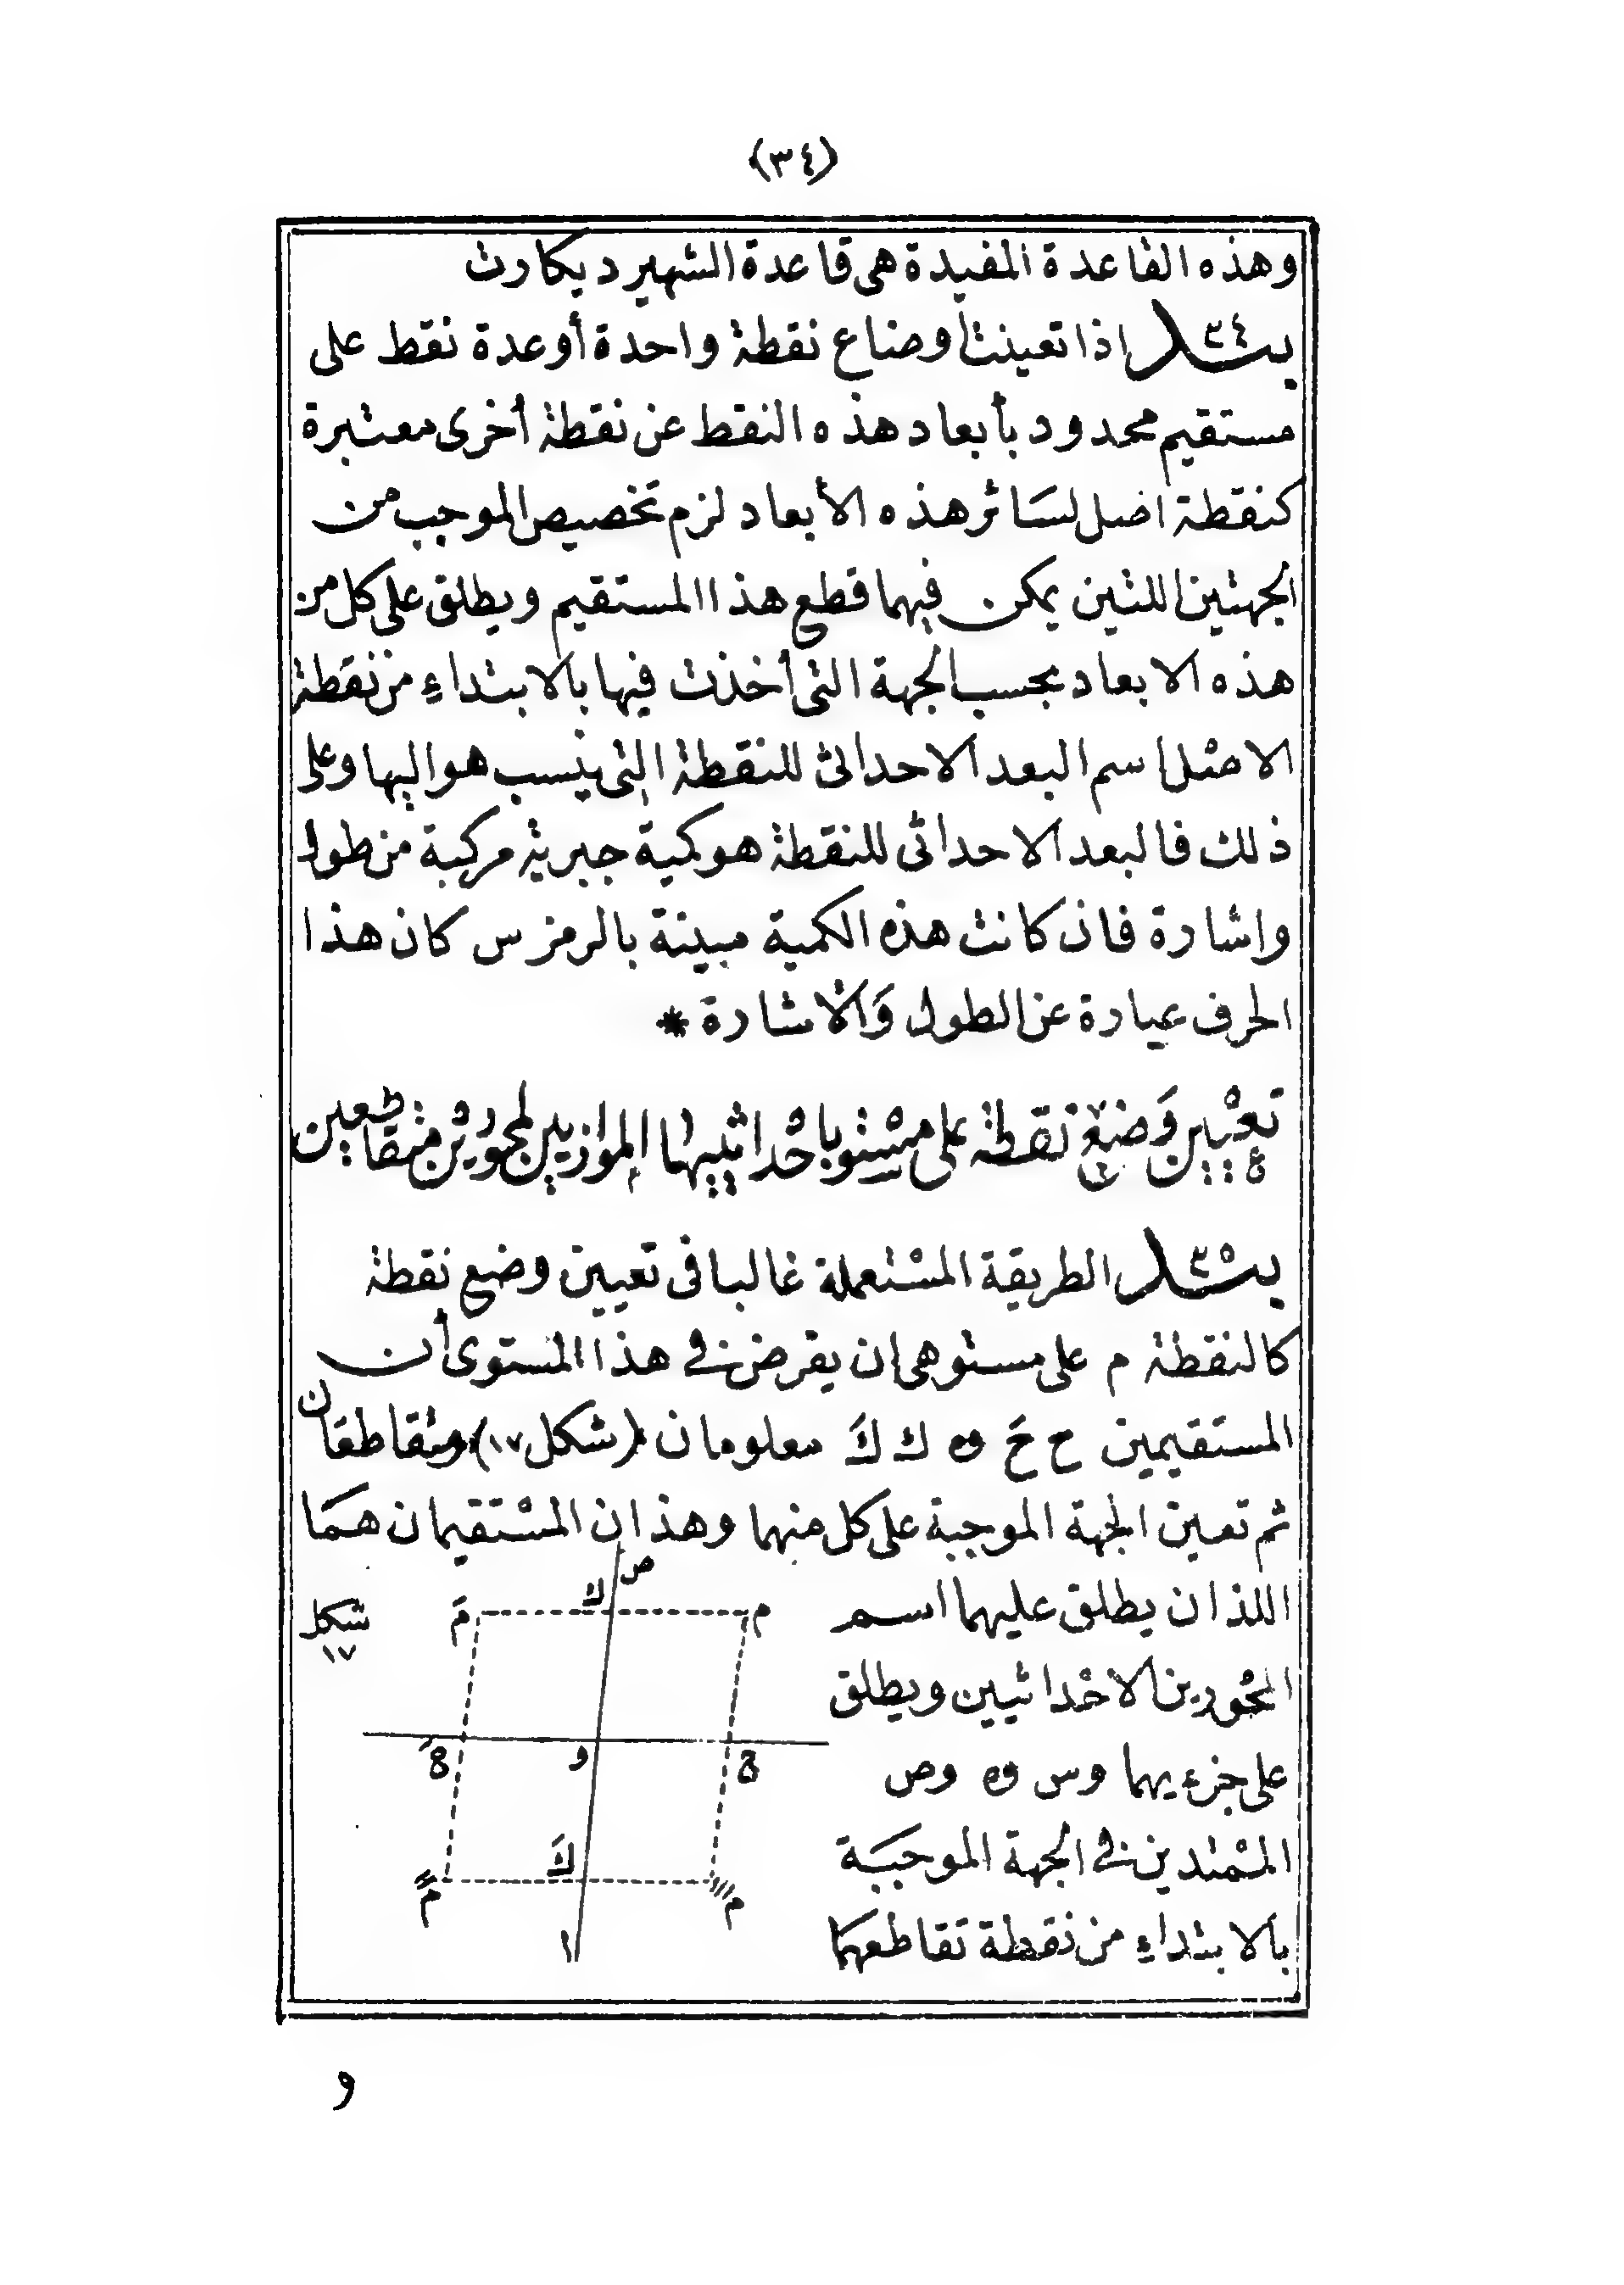 (٣٤)
وهذه القاعدة المفيدة هى قاعدة الشهير ديكارت
بند ٣٤ اذا تعينت أوضاع نقطة واحدة أوعدة نقط على
مستقيم محدود بأبعاد هذه النقط عن نقطة أخرى معتبرة
كنقطة اصل لسَائر هذه الأبعاد لزم تخصيص الموجب من
الجهتين اللتين يمكن فيهما قطع هذا المستقيم ويطلق على كل من
هذه الابعاد بحسب الجهة التى أخذت فيها بالابتداءِ من نقطة
الاصْل اسم البعد الاحداثى للنقطة التى ينسب هو اليها وعلى
ذلك فالبعد الاحداثى للنقطة هو كمية جبرية مركبة من طول
واشارة فان كانت هذه الكمية مبينة بالرمز س كان هذا
الحرف عبارة عن الطول وَالاشارة *
تعْيين وَضع نقطة على مسْتو باحْداثييها الموازيين لمحورْين متقاطعين
بند ٣٥ الطريقة المسْتعملة غالبا فى تعيين وضع نقطة
كالنقطة م على مستو هى ان يفرض فى هذا المستوى أن
المستَقيمين ح حَ و ك كَ معلومان (شكل ١٧) ومتقاطعَان
ثم تعين الجهة الموجبة على كل منهما وهذان المسْتقيمان همَا
اللذان يطلق عليهما اسم
المحْورين الاحْداثيين ويطلق
على جزءيهما وس و وص
المْمتدين فى الجهة الموجبَة
بالابتداءِ من نقطة تقاطعهمَا
شكل
١٧
ص
ك
م
مَ
ح
حَ
و
كَ
ا
و